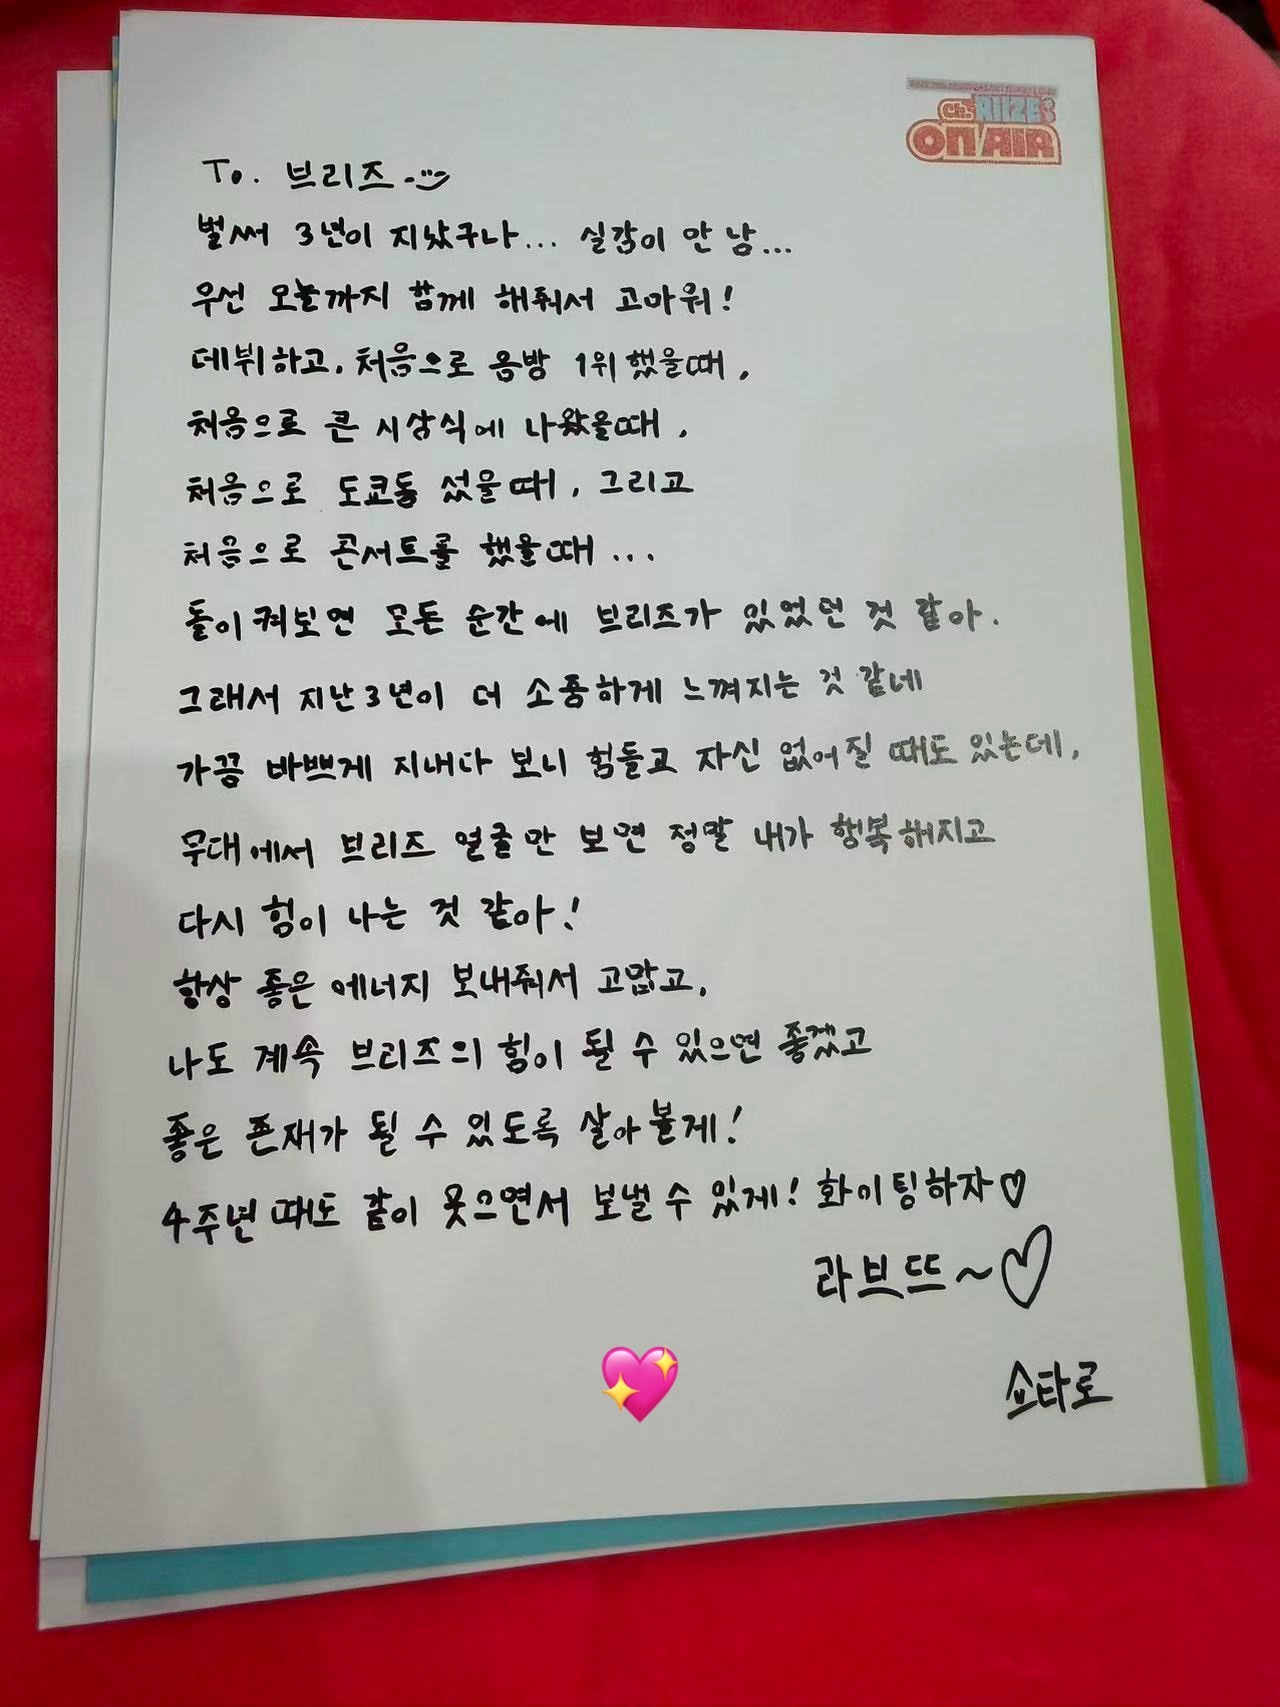 Ch.RIIZE
ON AIR
To. 브리즈
벌써 3년이 지났구나... 실감이 안 남...
우선 오늘까지 함께 해줘서 고마워!
데뷔하고, 처음으로 음방 1위 했을때,
처음으로 큰 시상식에 나왔을때,
처음으로 도쿄돔 섰을때, 그리고
처음으로 콘서트를 했을때...
돌이켜보면 모든 순간에 브리즈가 있었던 것 같아.
그래서 지난 3년이 더 소중하게 느껴지는 것 같네
가끔 바쁘게 지내다 보니 힘들고 자신 없어질 때도 있는데,
무대에서 브리즈 얼굴만 보면 정말 내가 행복해지고
다시 힘이 나는 것 같아!
항상 좋은 에너지 보내줘서 고맙고,
나도 계속 브리즈의 힘이 될 수 있으면 좋겠고
좋은 존재가 될 수 있도록 살아볼게!
4주년 때도 같이 웃으면서 보낼 수 있게! 화이팅하자♡
라브뜨~♡
쇼타로